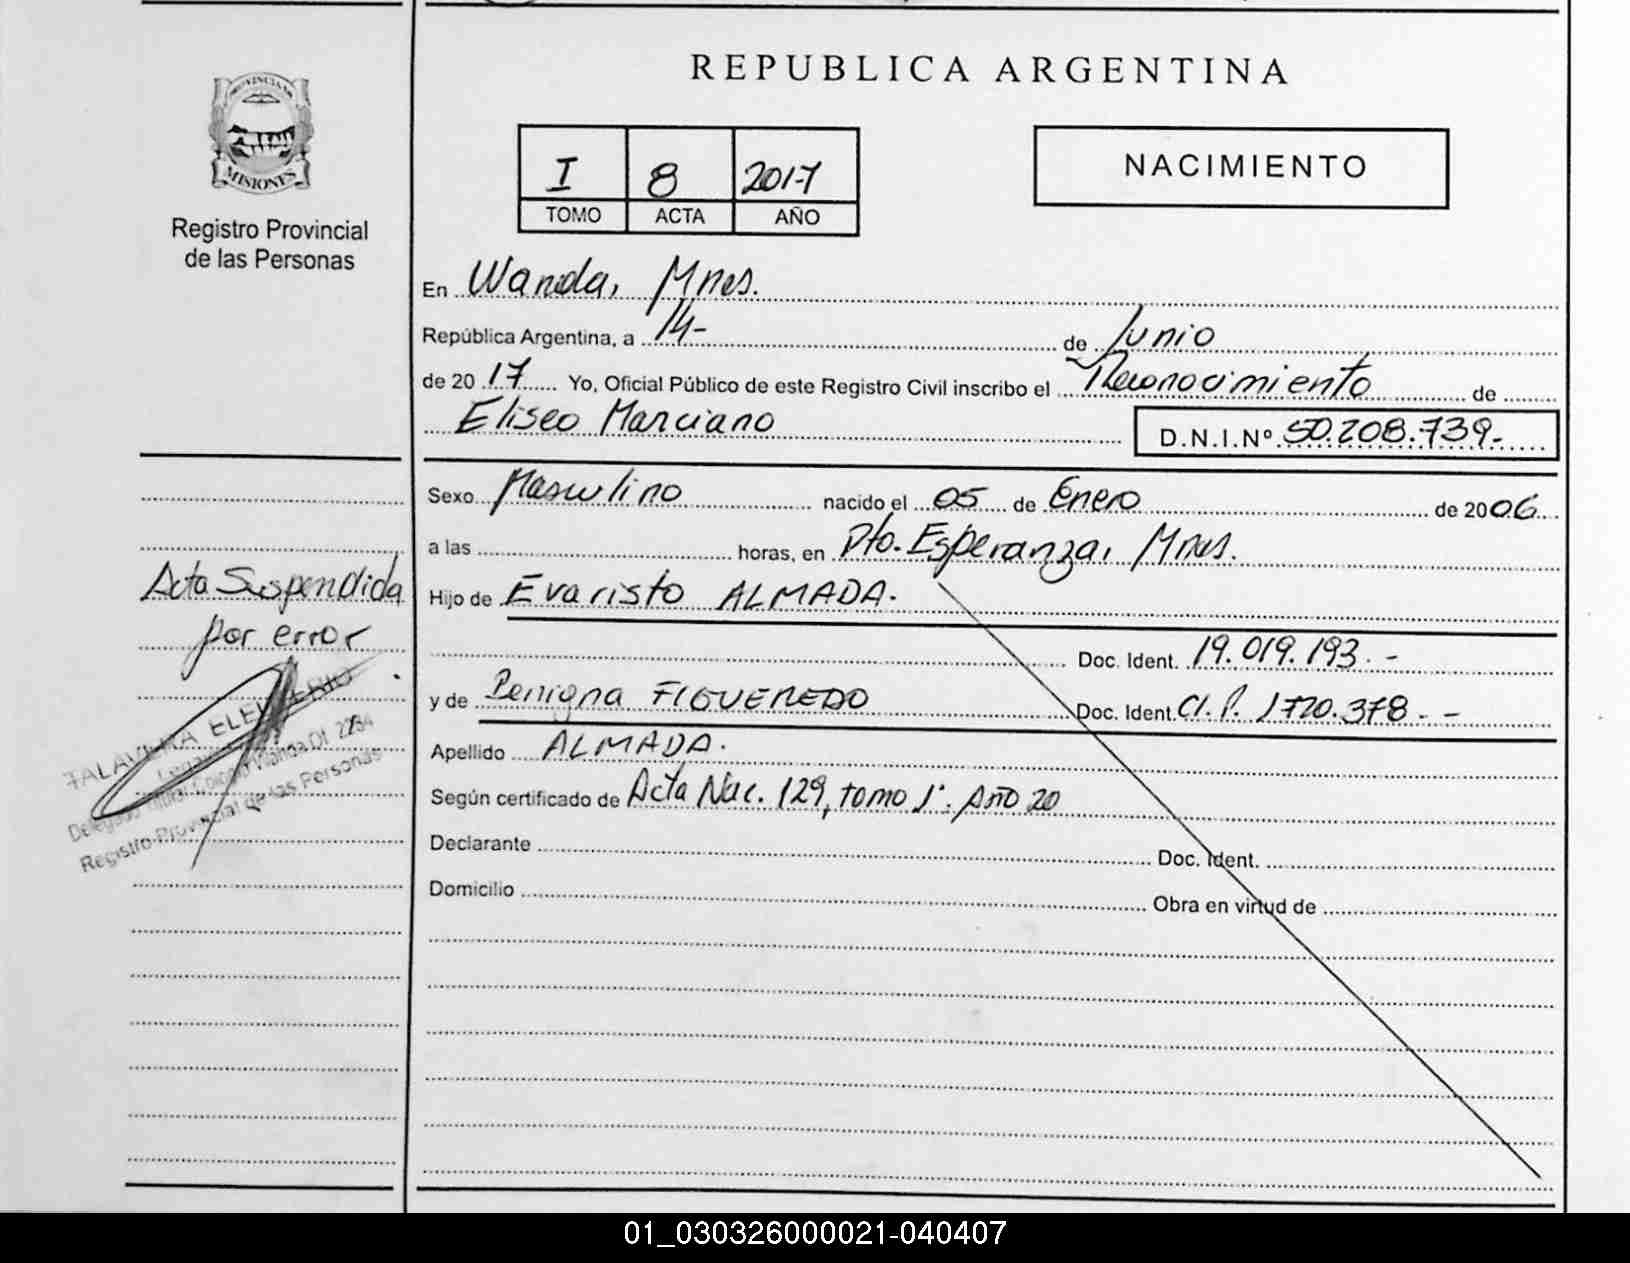 REPUBLICA ARGENTINA
PROVINCIA DE
MISIONES
Registro Provincial
de las Personas
I 8 2017
TOMO ACTA AÑO
NACIMIENTO
En Wanda, Mnes.
República Argentina, a 14- de Junio
de 20 17 Yo, Oficial Público de este Registro Civil inscribo el Reconocimiento de
Eliseo Marciano D.N.I.Nº 50.208.739-
Sexo Masculino nacido el 05 de Enero de 2006
a las horas, en Pto. Esperanza, Mnes.
Hijo de Evaristo ALMADA.
Doc. Ident. 19.019.193.-
y de Benigna FIGUEREDO Doc. Ident. CI. P. 1720.378.--
Apellido ALMADA.
Según certificado de Acta Nac. 129, tomo 1º. Año 20
Declarante Doc. Ident.
Domicilio Obra en virtud de
Acta Suspendida
por error
TALAVERA ELEUTERIO
Wanda DI 2264
Registro Provincial de las Personas
01_030326000021-040407